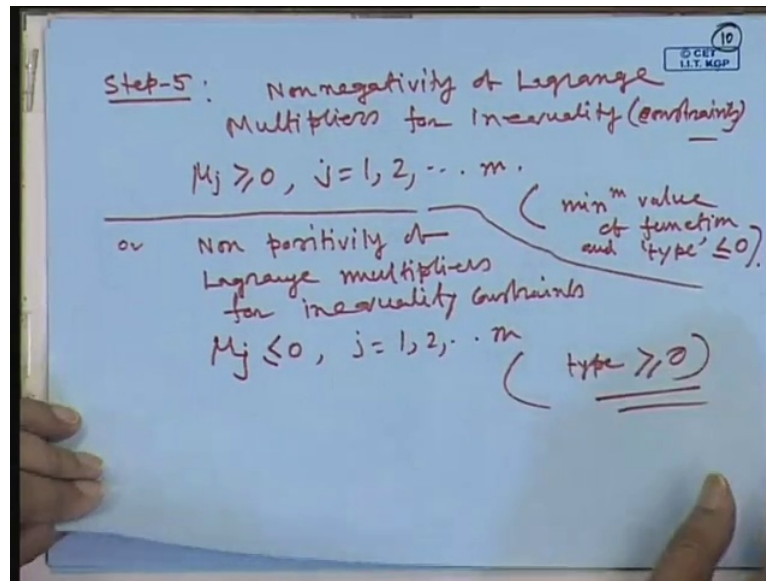 10
© CET
I.I.T. KGP
Step-5 : Nonnegativity of Lagrange
Multipliers for Inequality (constraints)
μj ≥ 0, j = 1, 2, ... m.
(minᵐ value
of function
and 'type' ≤ 0).
or Non positivity of
Lagrange multipliers
for inequality constraints
μj ≤ 0, j = 1, 2, .. m
(type ≥ 0)